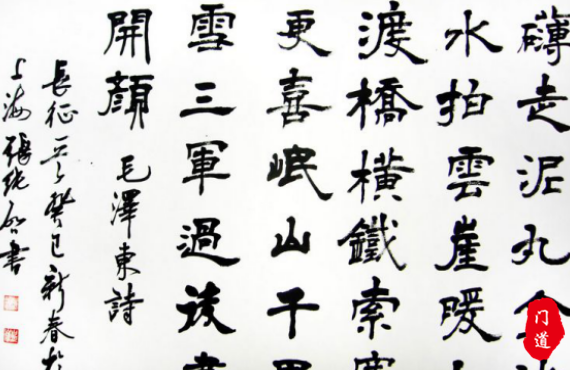 礴走泥丸
水拍雲崖暖
渡橋横鐵索寒
更喜岷山千里
雪三軍過後
開顔 毛澤東詩
長征 癸巳新春於
上海張書
门道